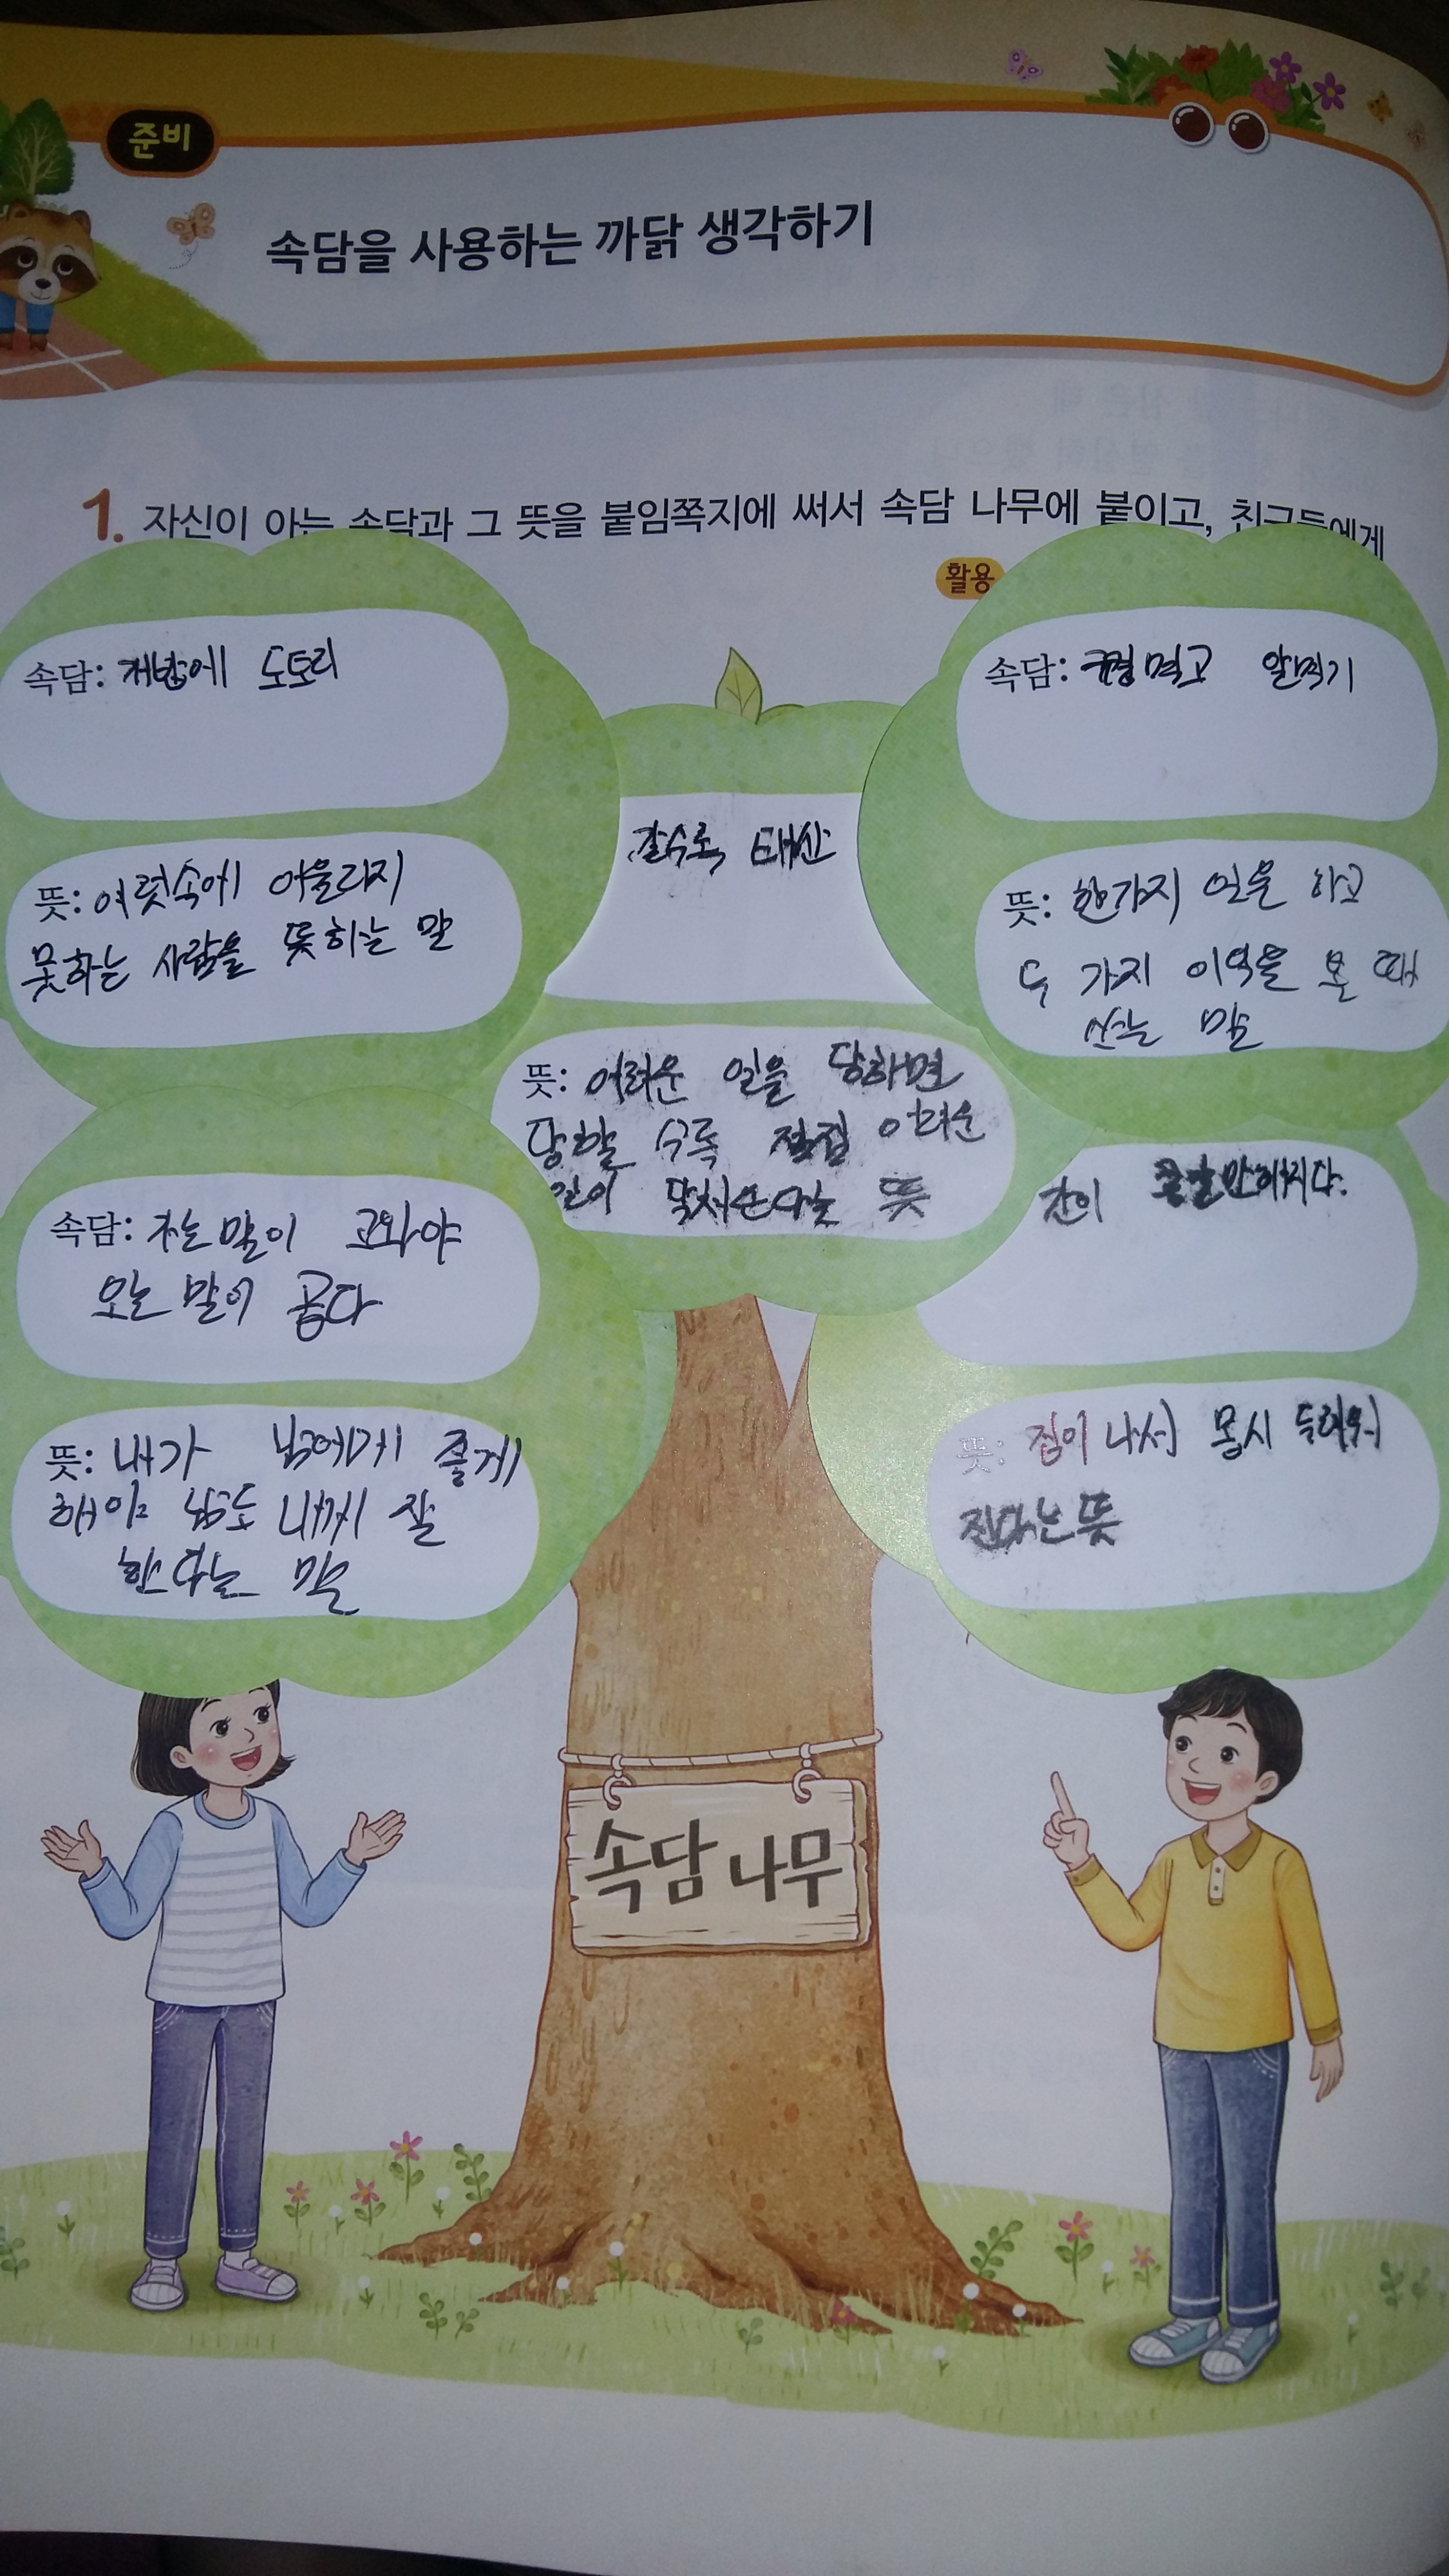 준비
속담을 사용하는 까닭 생각하기
1. 자신이 아는 속담과 그 뜻을 붙임쪽지에 써서 속담 나무에 붙이고, 친구들에게
활용
속담: 개밥에 도토리
뜻: 여럿속에 어울리지
못하는 사람을 뜻하는 말
갈수록 태산
뜻: 어려운 일을 당하면
당할 수록 점점 어려운
일이 닥쳐온다는 뜻
속담: 꿩먹고 알먹기
뜻: 한가지 일을 하고
두 가지 이익을 볼 때
쓰는 말
속담: 가는 말이 고와야
오는 말이 곱다
뜻: 내가 남에게 좋게
해야 남도 내게 잘
한다는 말
간이 콩알만해지다.
뜻: 겁이 나서 몹시 두려워
진다는 뜻
속담 나무